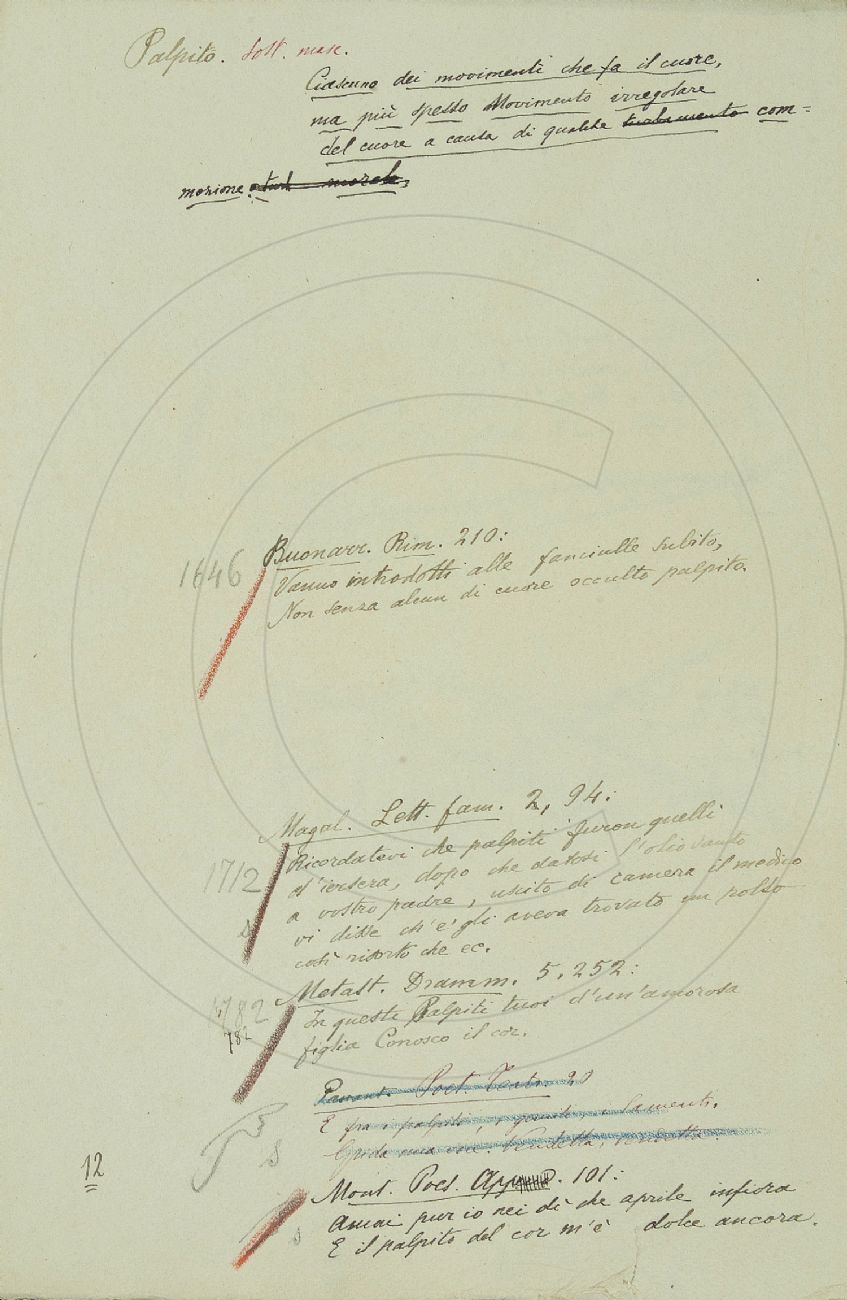 Palpito. Sost. masc.
Ciascuno dei movimenti che fa il cuore,
ma più spesso Movimento irregolare
del cuore a causa di qualche turbamento com=
mozione morale,
1646
Buonarr. Rim. 210:
Vanno introdotti alle fanciulle subito,
Non senza alcun di cuore occulto palpito.
Magal. Lett. fam. 2, 94:
Ricordatevi che palpiti furon quelli
1712
d'iersera, dopo che datosi l'olio santo
a vostro padre, uscito di camera il medico
S
vi disse ch'e' gli aveva trovato un polso
così risorto che ec.
1782
Metast. Dramm. 5, 252:
782
In questi Palpiti tuoi d'un'amorosa
figlia Conosco il cor.
Poet. Teatr. 20
E fra i palpiti, i gemiti, i lamenti,
S
Grida una voce: Vendetta, vendetta.
12
Mont. Poes. 101:
Amai pur io nei dì che aprile infiora
S
E il palpito del cor m'è dolce ancora.